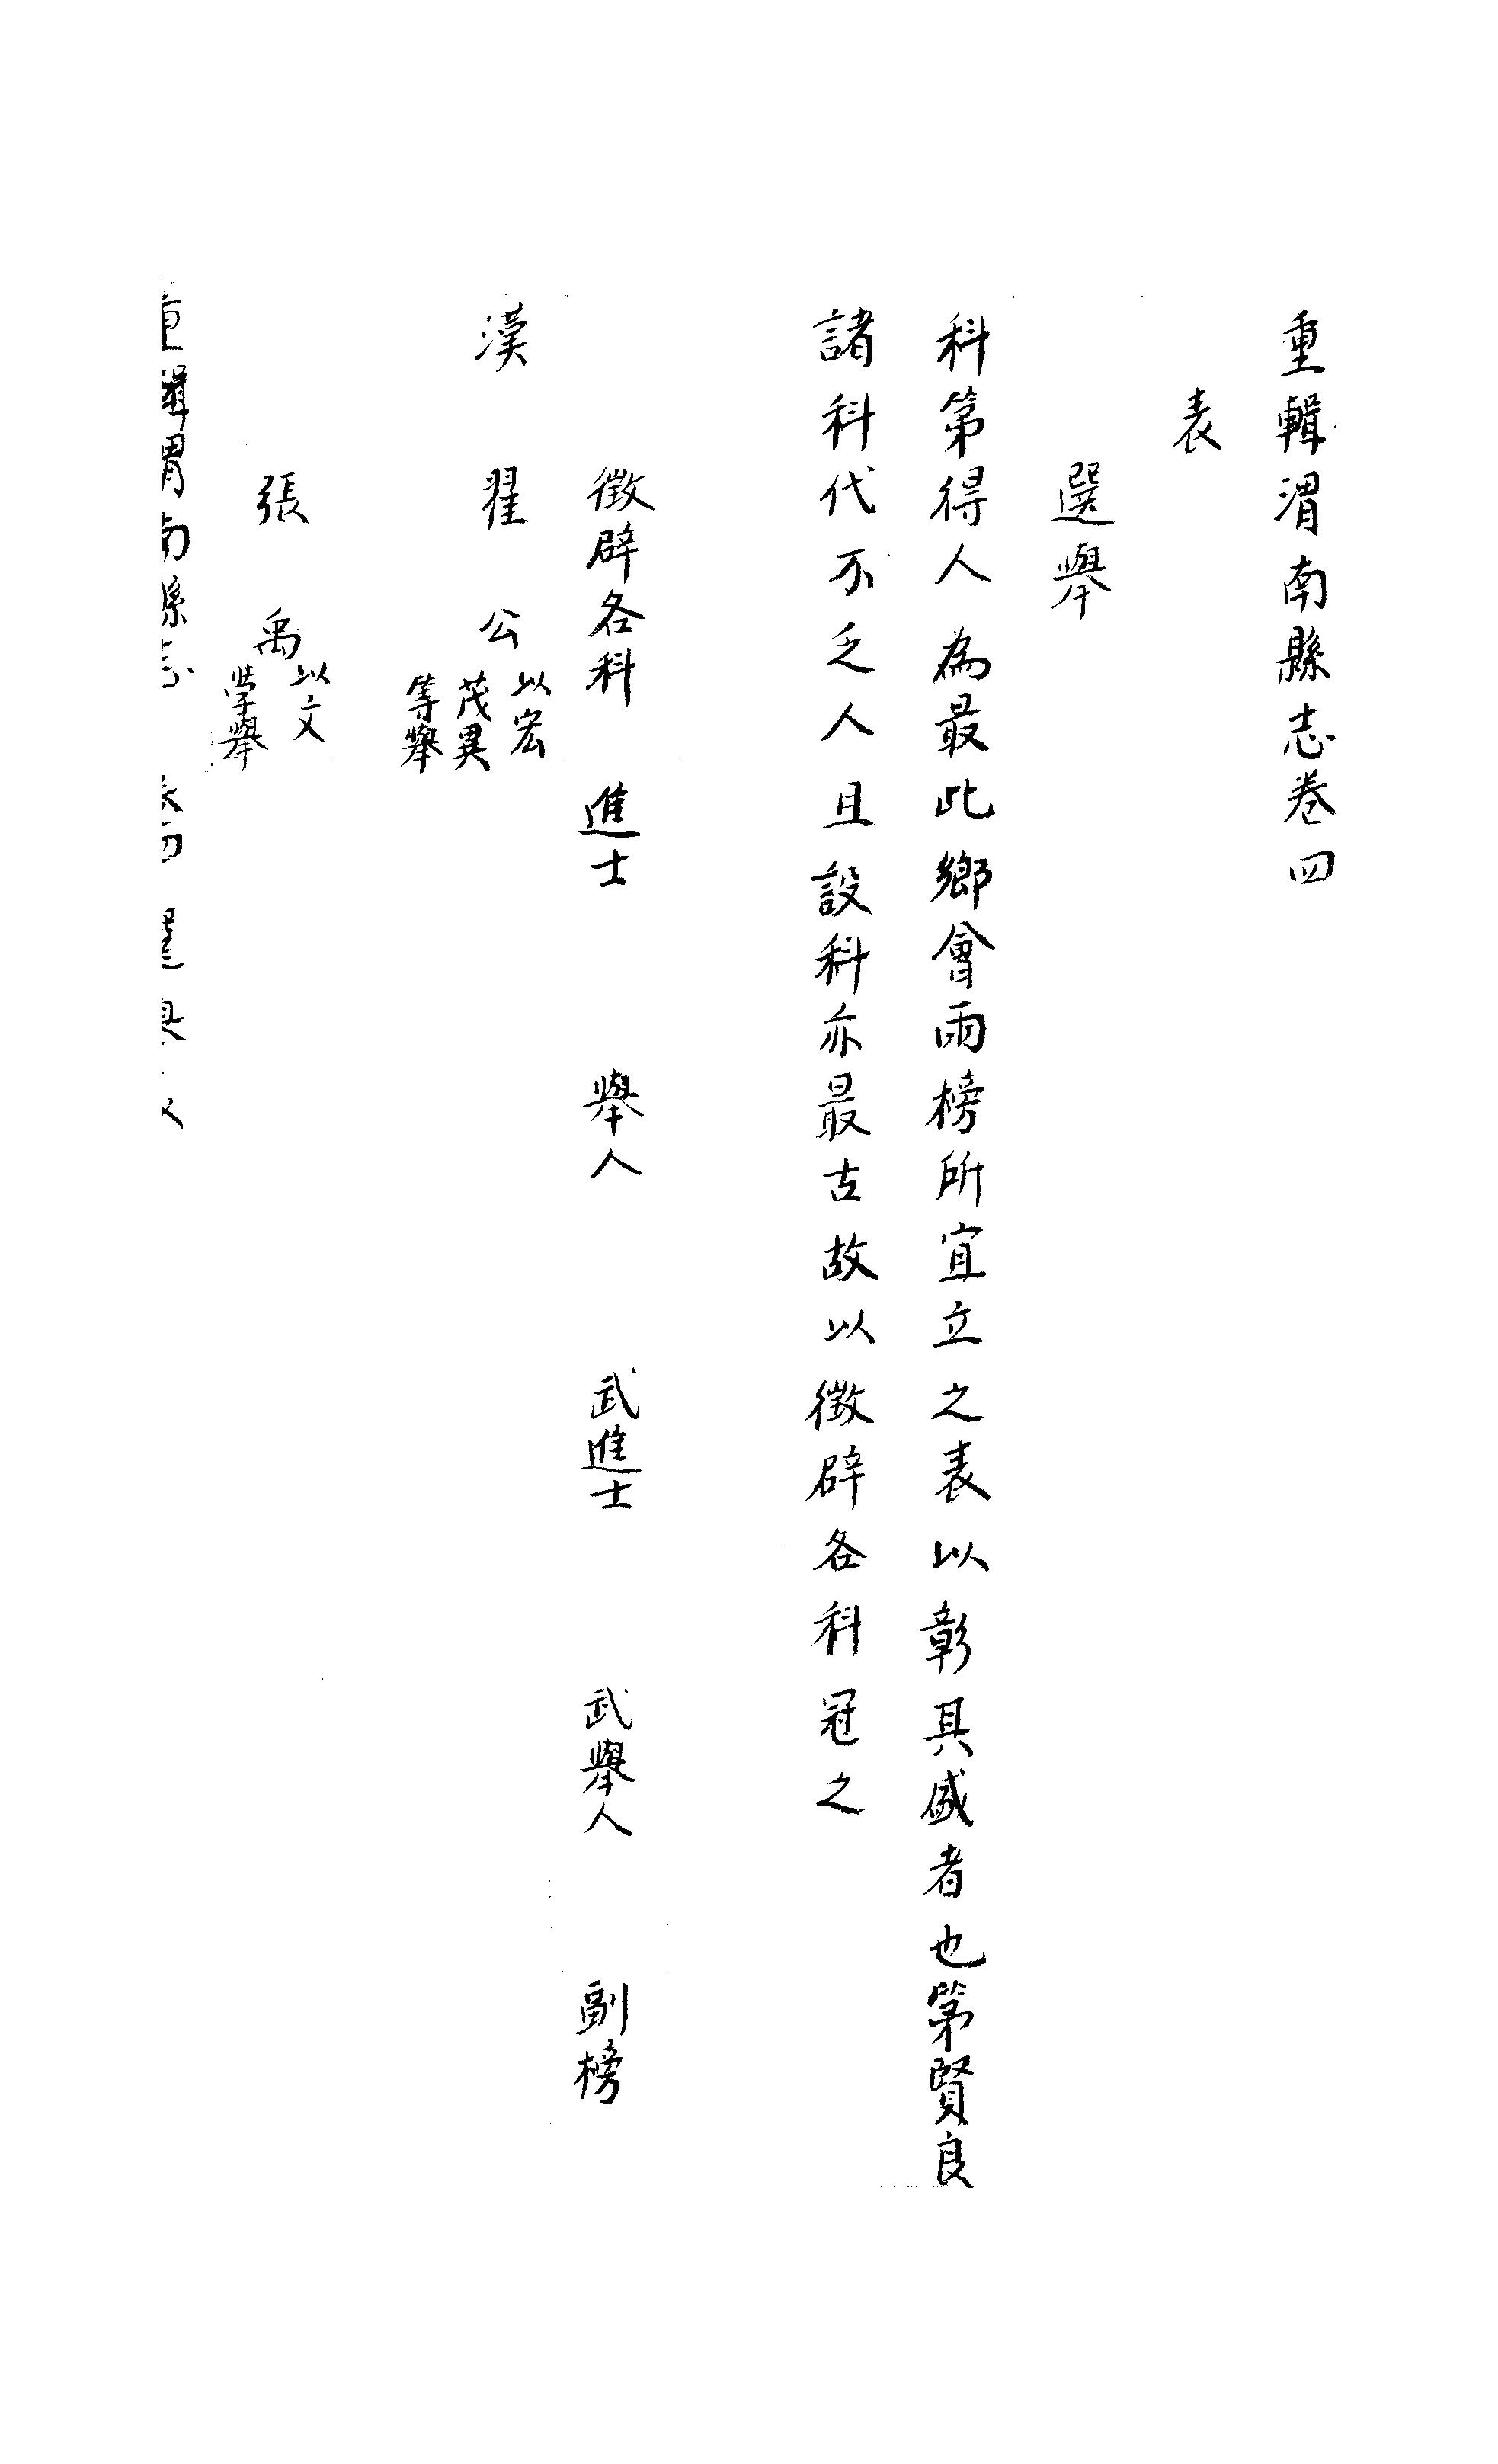 重輯渭南縣志卷四
表
選舉
科第得人為最此鄉會兩榜所宜立之表以彰其盛者也第賢良
諸科代不乏人且設科亦最古故以徵辟各科冠之
徵辟各科 進士 舉人 武進士 武舉人 副榜
漢 翟公 以宏茂異等舉
張禹 以文學舉
重輯渭南縣志